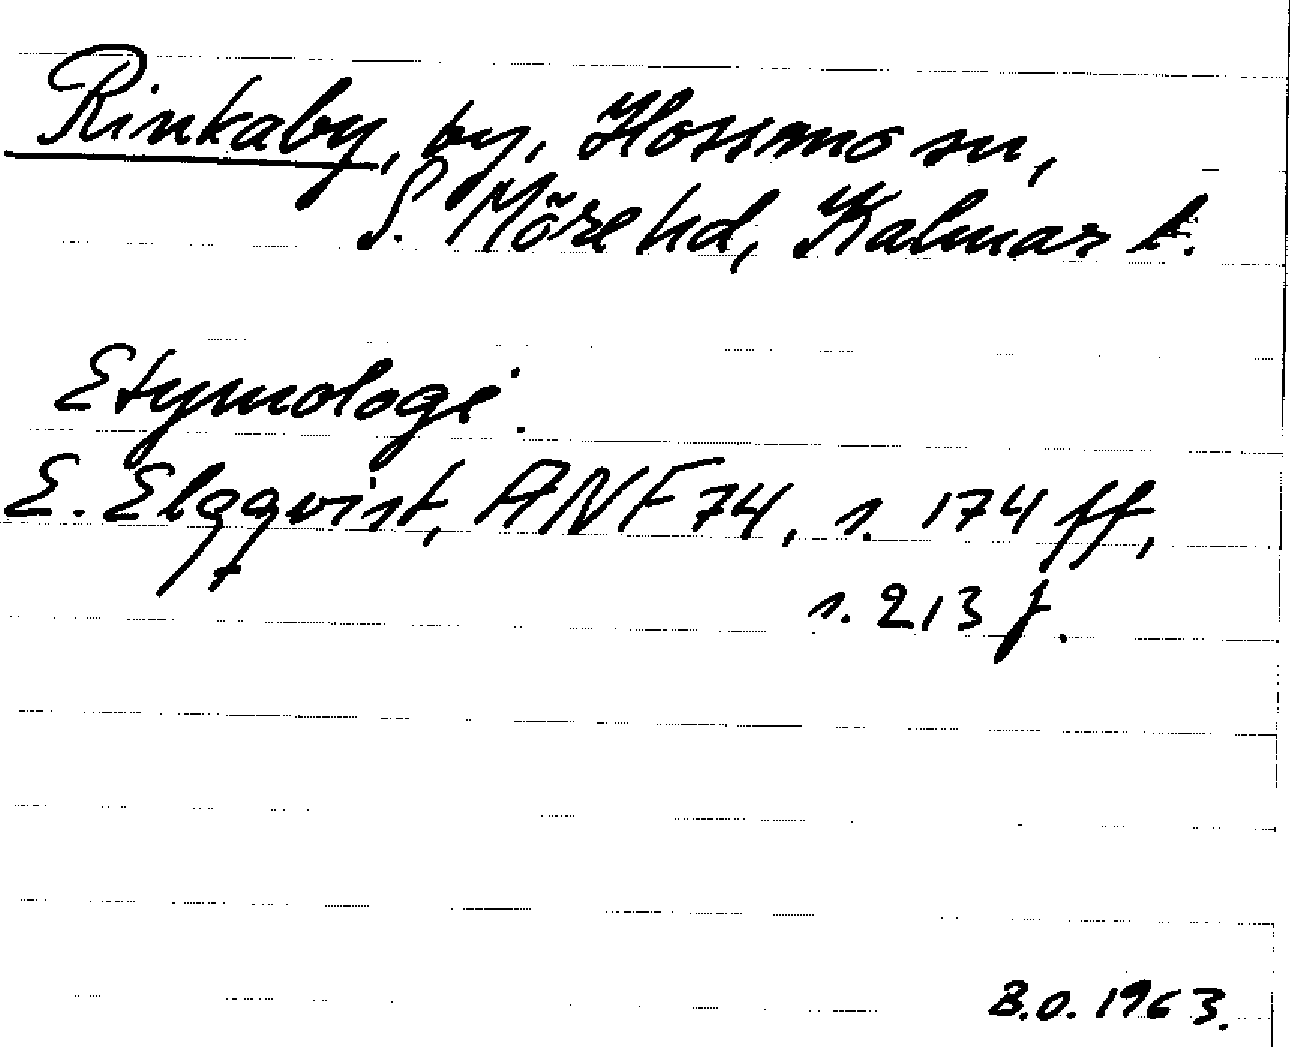 Rinkaby, by, Hossmo sn,
S. Möre hd, Kalmar l.
Etymologi.
E. Elgqvist, ANF 74, s. 174 ff,
s. 213 f.
B.O. 1963.